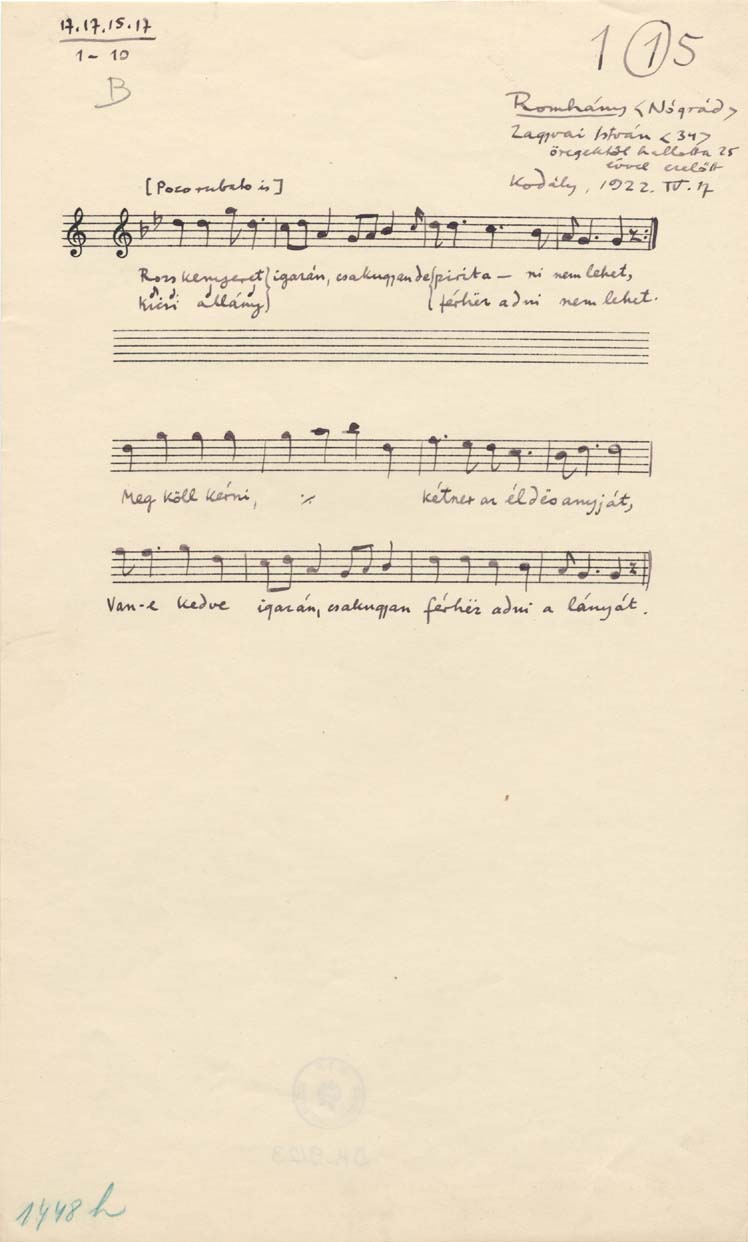 17.17.15.17
1 – 10
B
1 1 5
Romhány <Nógrád>
Zagyvai István <34>
öregektől hallotta 25
évvel ezelőtt
Kodály, 1922. IV. 17
[Poco rubato is]
Rozskenyeret igazán, csakugyan de pirita – ni nem lehet,
kicsi a lány férhëz adni nem lehet.
Meg köll kérni, ·/· kétner az éldësanyját,
Van-e kedve igazán, csakugyan férhëz adni a lányát.
1448 h